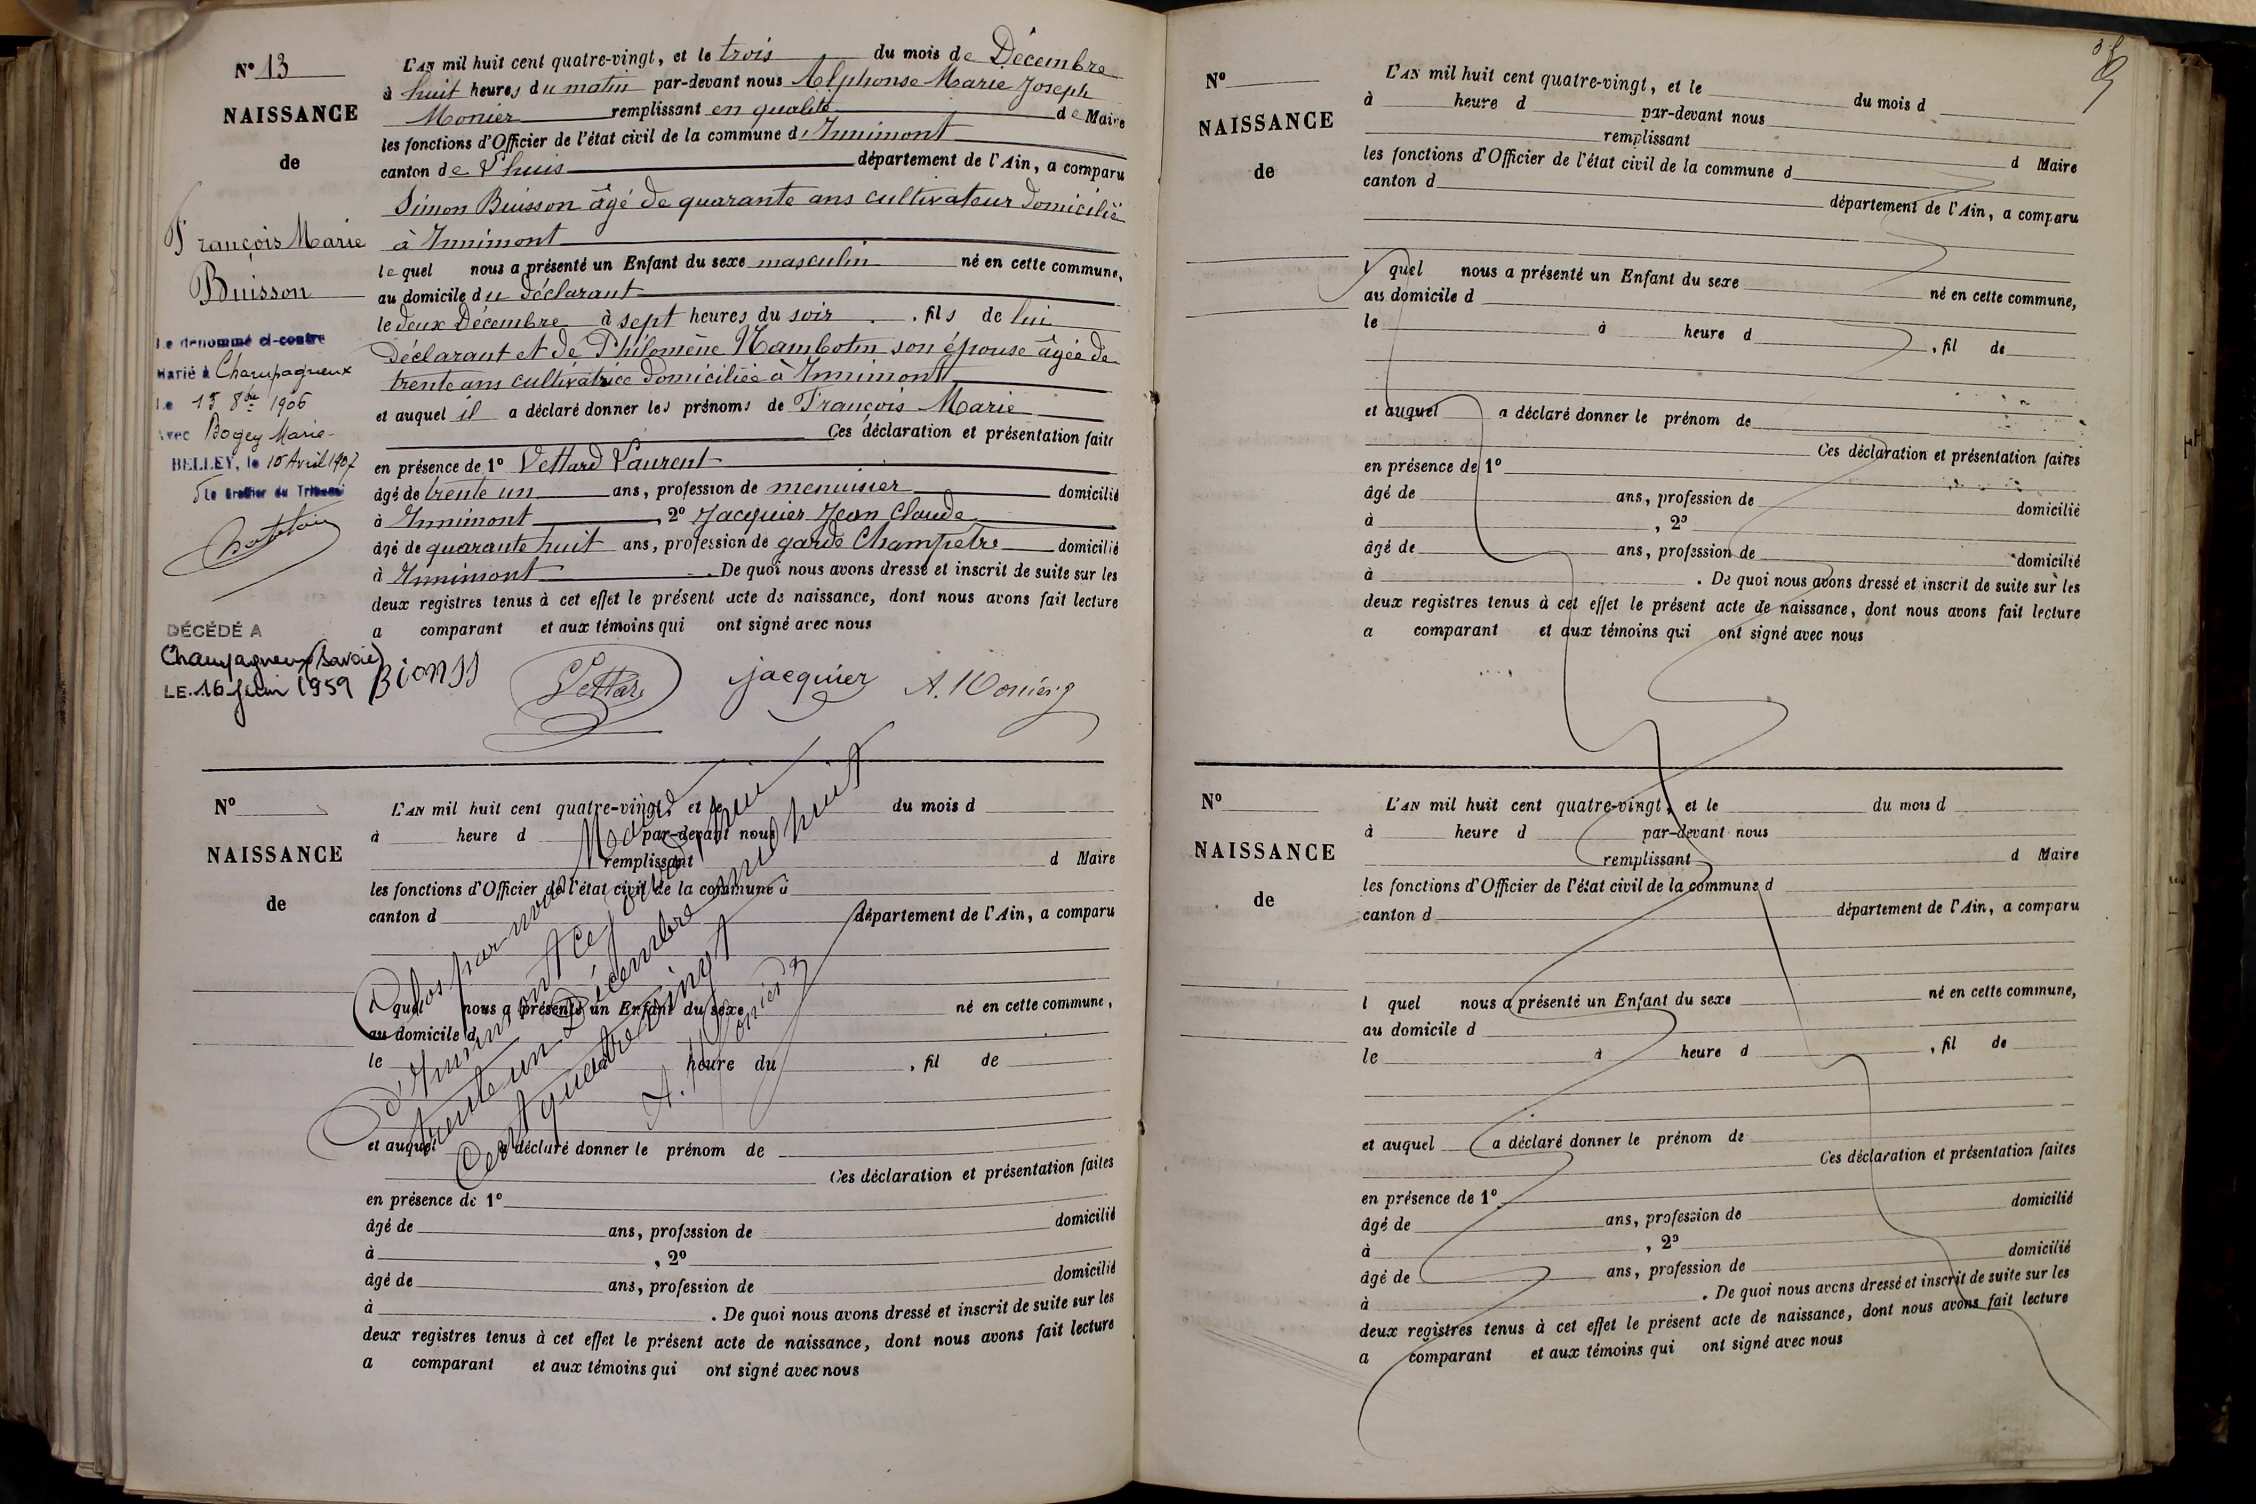 N° 13
NAISSANCE
de
François Marie
Buisson
Le dénommé ci-contre
Marié à Champagneux
Le 15 8bre 1906
Avec Bogey Marie
BELLEY, le 10 Avril 1907
Le Greffier du Tribunal
DÉCÉDÉ A
Champagneux (Savoie)
LE 16 Juin 1959
L'AN mil huit cent quatre-vingt, et le trois du mois de Décembre
à huit heures du matin par-devant nous Alphonse Marie Joseph
Monier remplissant en qualité de Maire
les fonctions d'Officier de l'état civil de la commune d'Innimont
canton de Lhuis département de l'Ain, a comparu
Simon Buisson âgé de quarante ans cultivateur domicilié
à Innimont
lequel nous a présenté un Enfant du sexe masculin né en cette commune,
au domicile du déclarant
le deux Décembre à sept heures du soir, fils de lui
Déclarant et de Philomène Nambotin son épouse âgée de
trente ans cultivatrice domiciliée à Innimont
et auquel il a déclaré donner les prénoms de François Marie
Ces déclaration et présentation faites
en présence de 1° Vettard Laurent
âgé de trente un ans, profession de menuisier domicilié
à Innimont, 2° Jacquier Jean Claude
âgé de quarante huit ans, profession de garde Champetre domicilié
à Innimont. De quoi nous avons dressé et inscrit de suite sur les
deux registres tenus à cet effet le présent acte de naissance, dont nous avons fait lecture
a comparant et aux témoins qui ont signé avec nous
Vettard jacquier A. Monier
N°
NAISSANCE
de
L'AN mil huit cent quatre-vingt, et le du mois d
à heure d par-devant nous
remplissant d Maire
les fonctions d'Officier de l'état civil de la commune d
canton d département de l'Ain, a comparu
l quel nous a présenté un Enfant du sexe né en cette commune,
au domicile d
le heure du , fil de
et auquel a déclaré donner le prénom de
Ces déclaration et présentation faites
en présence de 1°
âgé de ans, profession de domicilié
à , 2°
âgé de ans, profession de domicilié
à . De quoi nous avons dressé et inscrit de suite sur les
deux registres tenus à cet effet le présent acte de naissance, dont nous avons fait lecture
a comparant et aux témoins qui ont signé avec nous
Clos par nous Maire
d'Innimont ce jourd'hui
trente un Décembre mil huit
Cent quatre vingt
A. Monier
N°
NAISSANCE
de
L'AN mil huit cent quatre-vingt, et le du mois d
à heure d par-devant nous
remplissant d Maire
les fonctions d'Officier de l'état civil de la commune d
canton d département de l'Ain, a comparu
l quel nous a présenté un Enfant du sexe né en cette commune,
au domicile d
le à heure d , fil de
et auquel a déclaré donner le prénom de
Ces déclaration et présentation faites
en présence de 1°
âgé de ans, profession de domicilié
à , 2°
âgé de ans, profession de domicilié
à . De quoi nous avons dressé et inscrit de suite sur les
deux registres tenus à cet effet le présent acte de naissance, dont nous avons fait lecture
a comparant et aux témoins qui ont signé avec nous
N°
NAISSANCE
de
L'AN mil huit cent quatre-vingt, et le du mois d
à heure d par-devant nous
remplissant d Maire
les fonctions d'Officier de l'état civil de la commune d
canton d département de l'Ain, a comparu
l quel nous a présenté un Enfant du sexe né en cette commune,
au domicile d
le à heure d , fil de
et auquel a déclaré donner le prénom de
Ces déclaration et présentation faites
en présence de 1°
âgé de ans, profession de domicilié
à , 2°
âgé de ans, profession de domicilié
à . De quoi nous avons dressé et inscrit de suite sur les
deux registres tenus à cet effet le présent acte de naissance, dont nous avons fait lecture
a comparant et aux témoins qui ont signé avec nous